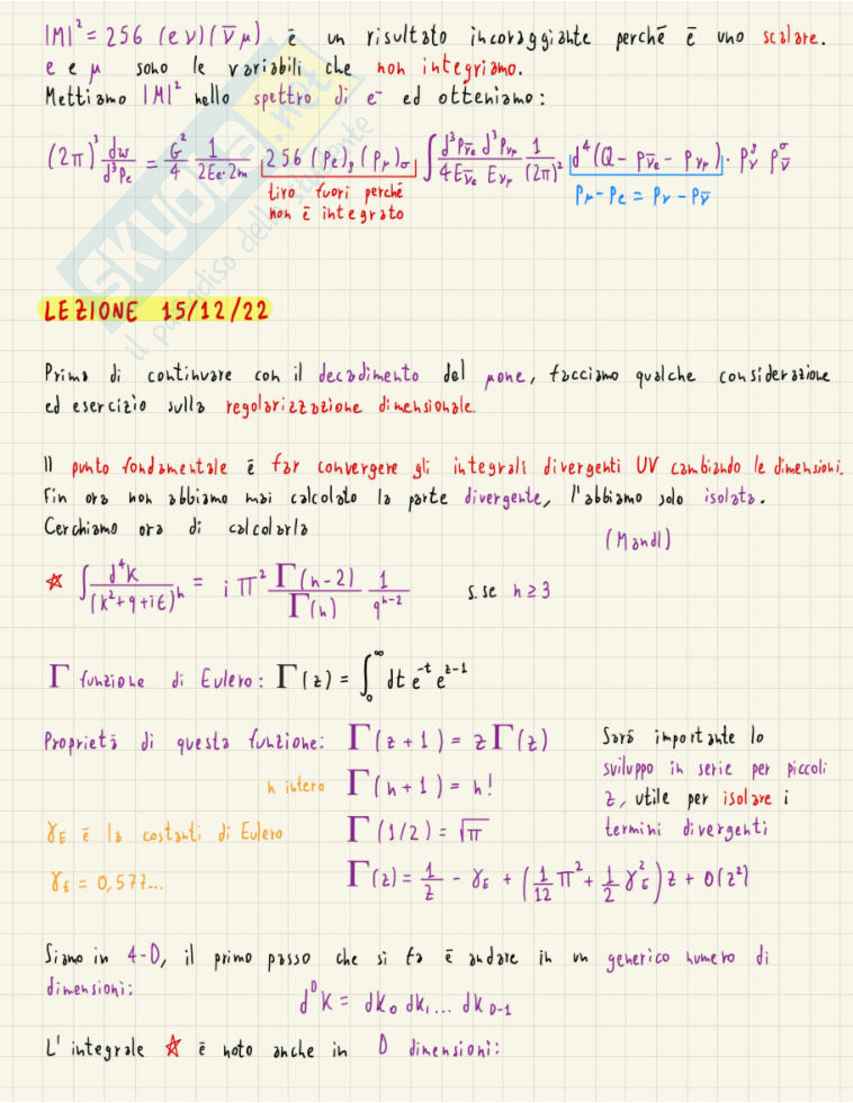 |M|² = 256 (e ν)(ν̄ μ) ē un risultato incoraggiante perché ē uno scalare.
e e μ sono le variabili che non integriamo.
Mettiamo |M|² nello spettro di e⁻ ed otteniamo:
(2π)³ dw/d³Pe = G²/4 1/(2Ee·2m) 256 (Pe)ρ (Pμ)σ ∫ d³Pν̄e d³Pνμ/(4Eν̄e Eνμ) 1/(2π)² d⁴(Q - Pν̄e - Pνμ) · Pν^ρ Pν̄^σ
tiro fuori perché
non ē integrato
Pμ - Pe = Pν - Pν̄
SKUOLA.net
il paradiso dello studente
LEZIONE 15/12/22
Prima di continuare con il decadimento del μone, facciamo qualche considerazione
ed esercizio sulla regolarizzazione dimensionale.
Il punto fondamentale ē far convergere gli integrali divergenti UV cambiando le dimensioni.
Fin ora non abbiamo mai calcolato la parte divergente, l'abbiamo solo isolata.
Cerchiamo ora di calcolarla
(Mandl)
☆ ∫ d⁴K/(K²+q+iε)ⁿ = i π² Γ(n-2)/Γ(n) 1/qⁿ⁻² s.se n ≥ 3
Γ funzione di Eulero: Γ(z) = ∫₀^∞ dt e^-t e^z-1
Proprietà di questa funzione: Γ(z+1) = zΓ(z)
n intero Γ(n+1) = n!
γE ē la costanti di Eulero Γ(1/2) = √π
γE = 0,577... Γ(z) = 1/z - γE + (1/12 π² + 1/2 γE²) z + O(z²)
Sarà importante lo
sviluppo in serie per piccoli
z, utile per isolare i
termini divergenti
Siamo in 4-D, il primo passo che si fa ē andare in un generico numero di
dimensioni:
d^D K = dk₀ dk₁ ... dk D-1
L'integrale ☆ ē noto anche in D dimensioni: